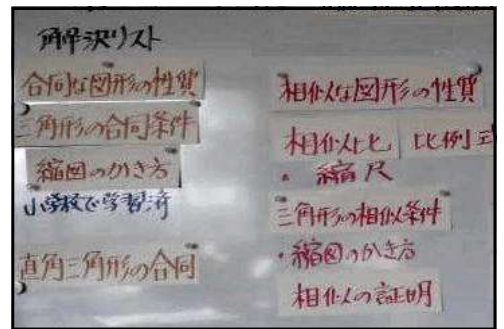 解決リスト
合同な図形の性質
三角形の合同条件
縮図のかき方
小学校で学習済
直角三角形の合同
相似な図形の性質
相似比 比例式
・縮尺
三角形の相似条件
・縮図のかき方
相似の証明